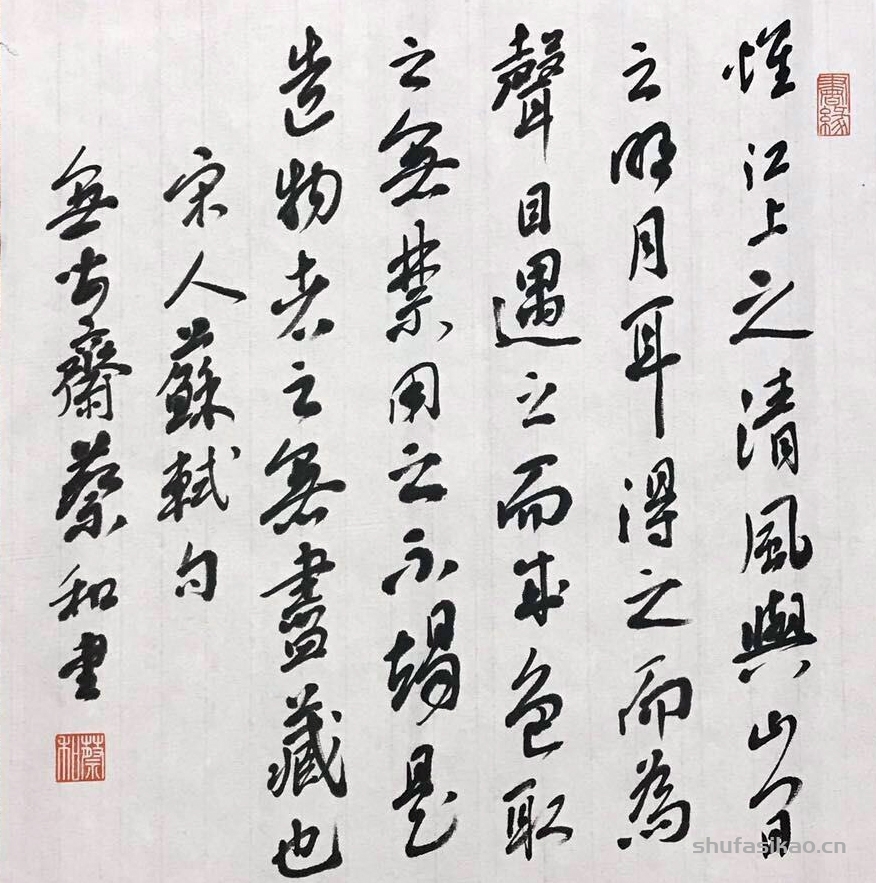 書緣
惟江上之清風與山間
之明月耳得之而為
聲目遇之而成色取
之無禁用之不竭是
造物者之無盡藏也
宋人蘇軾句
無齋蔡和書
蔡和
shufasikao.cn